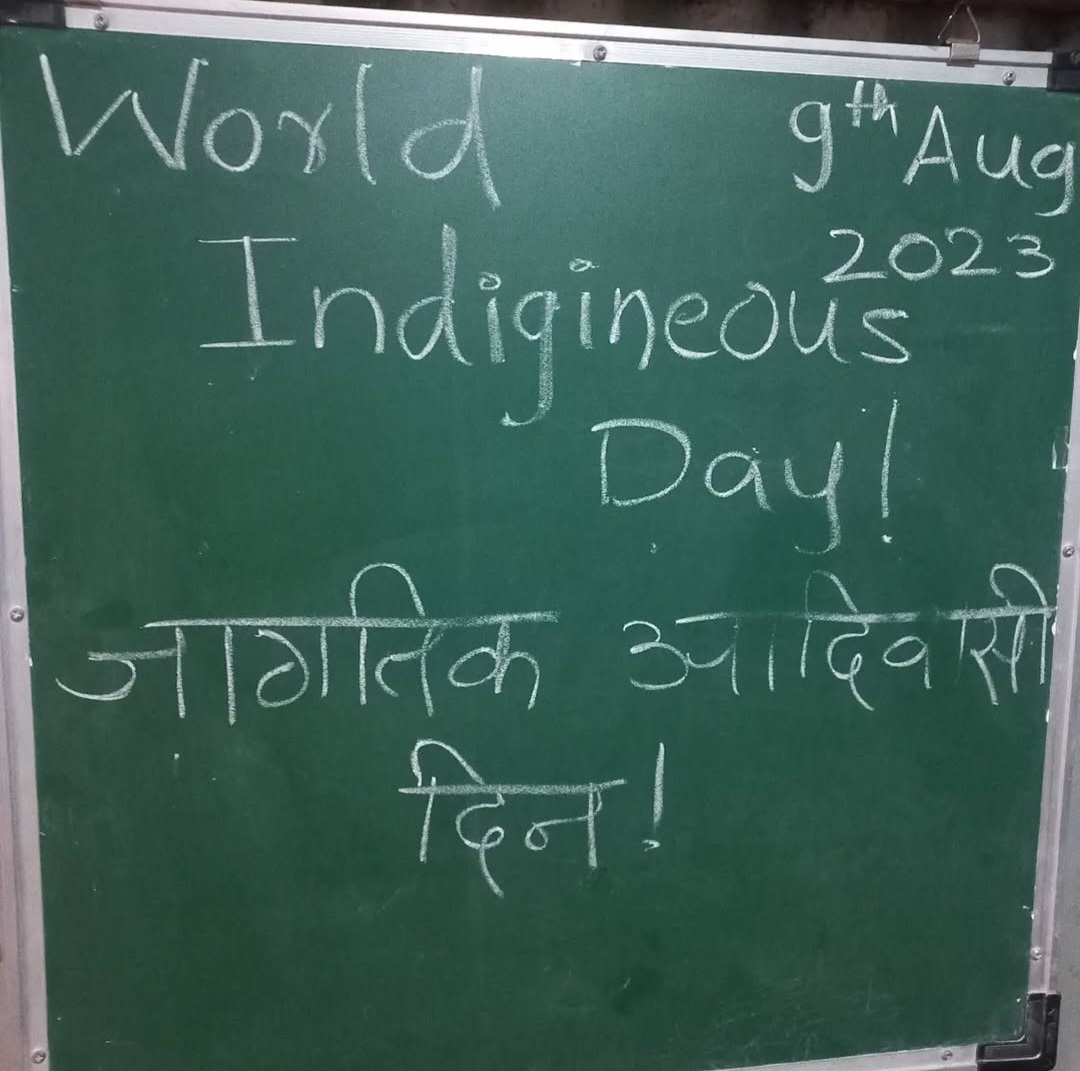 World 9th Aug
2023
Indigineous
Day!
जागतिक आदिवासी
दिन!